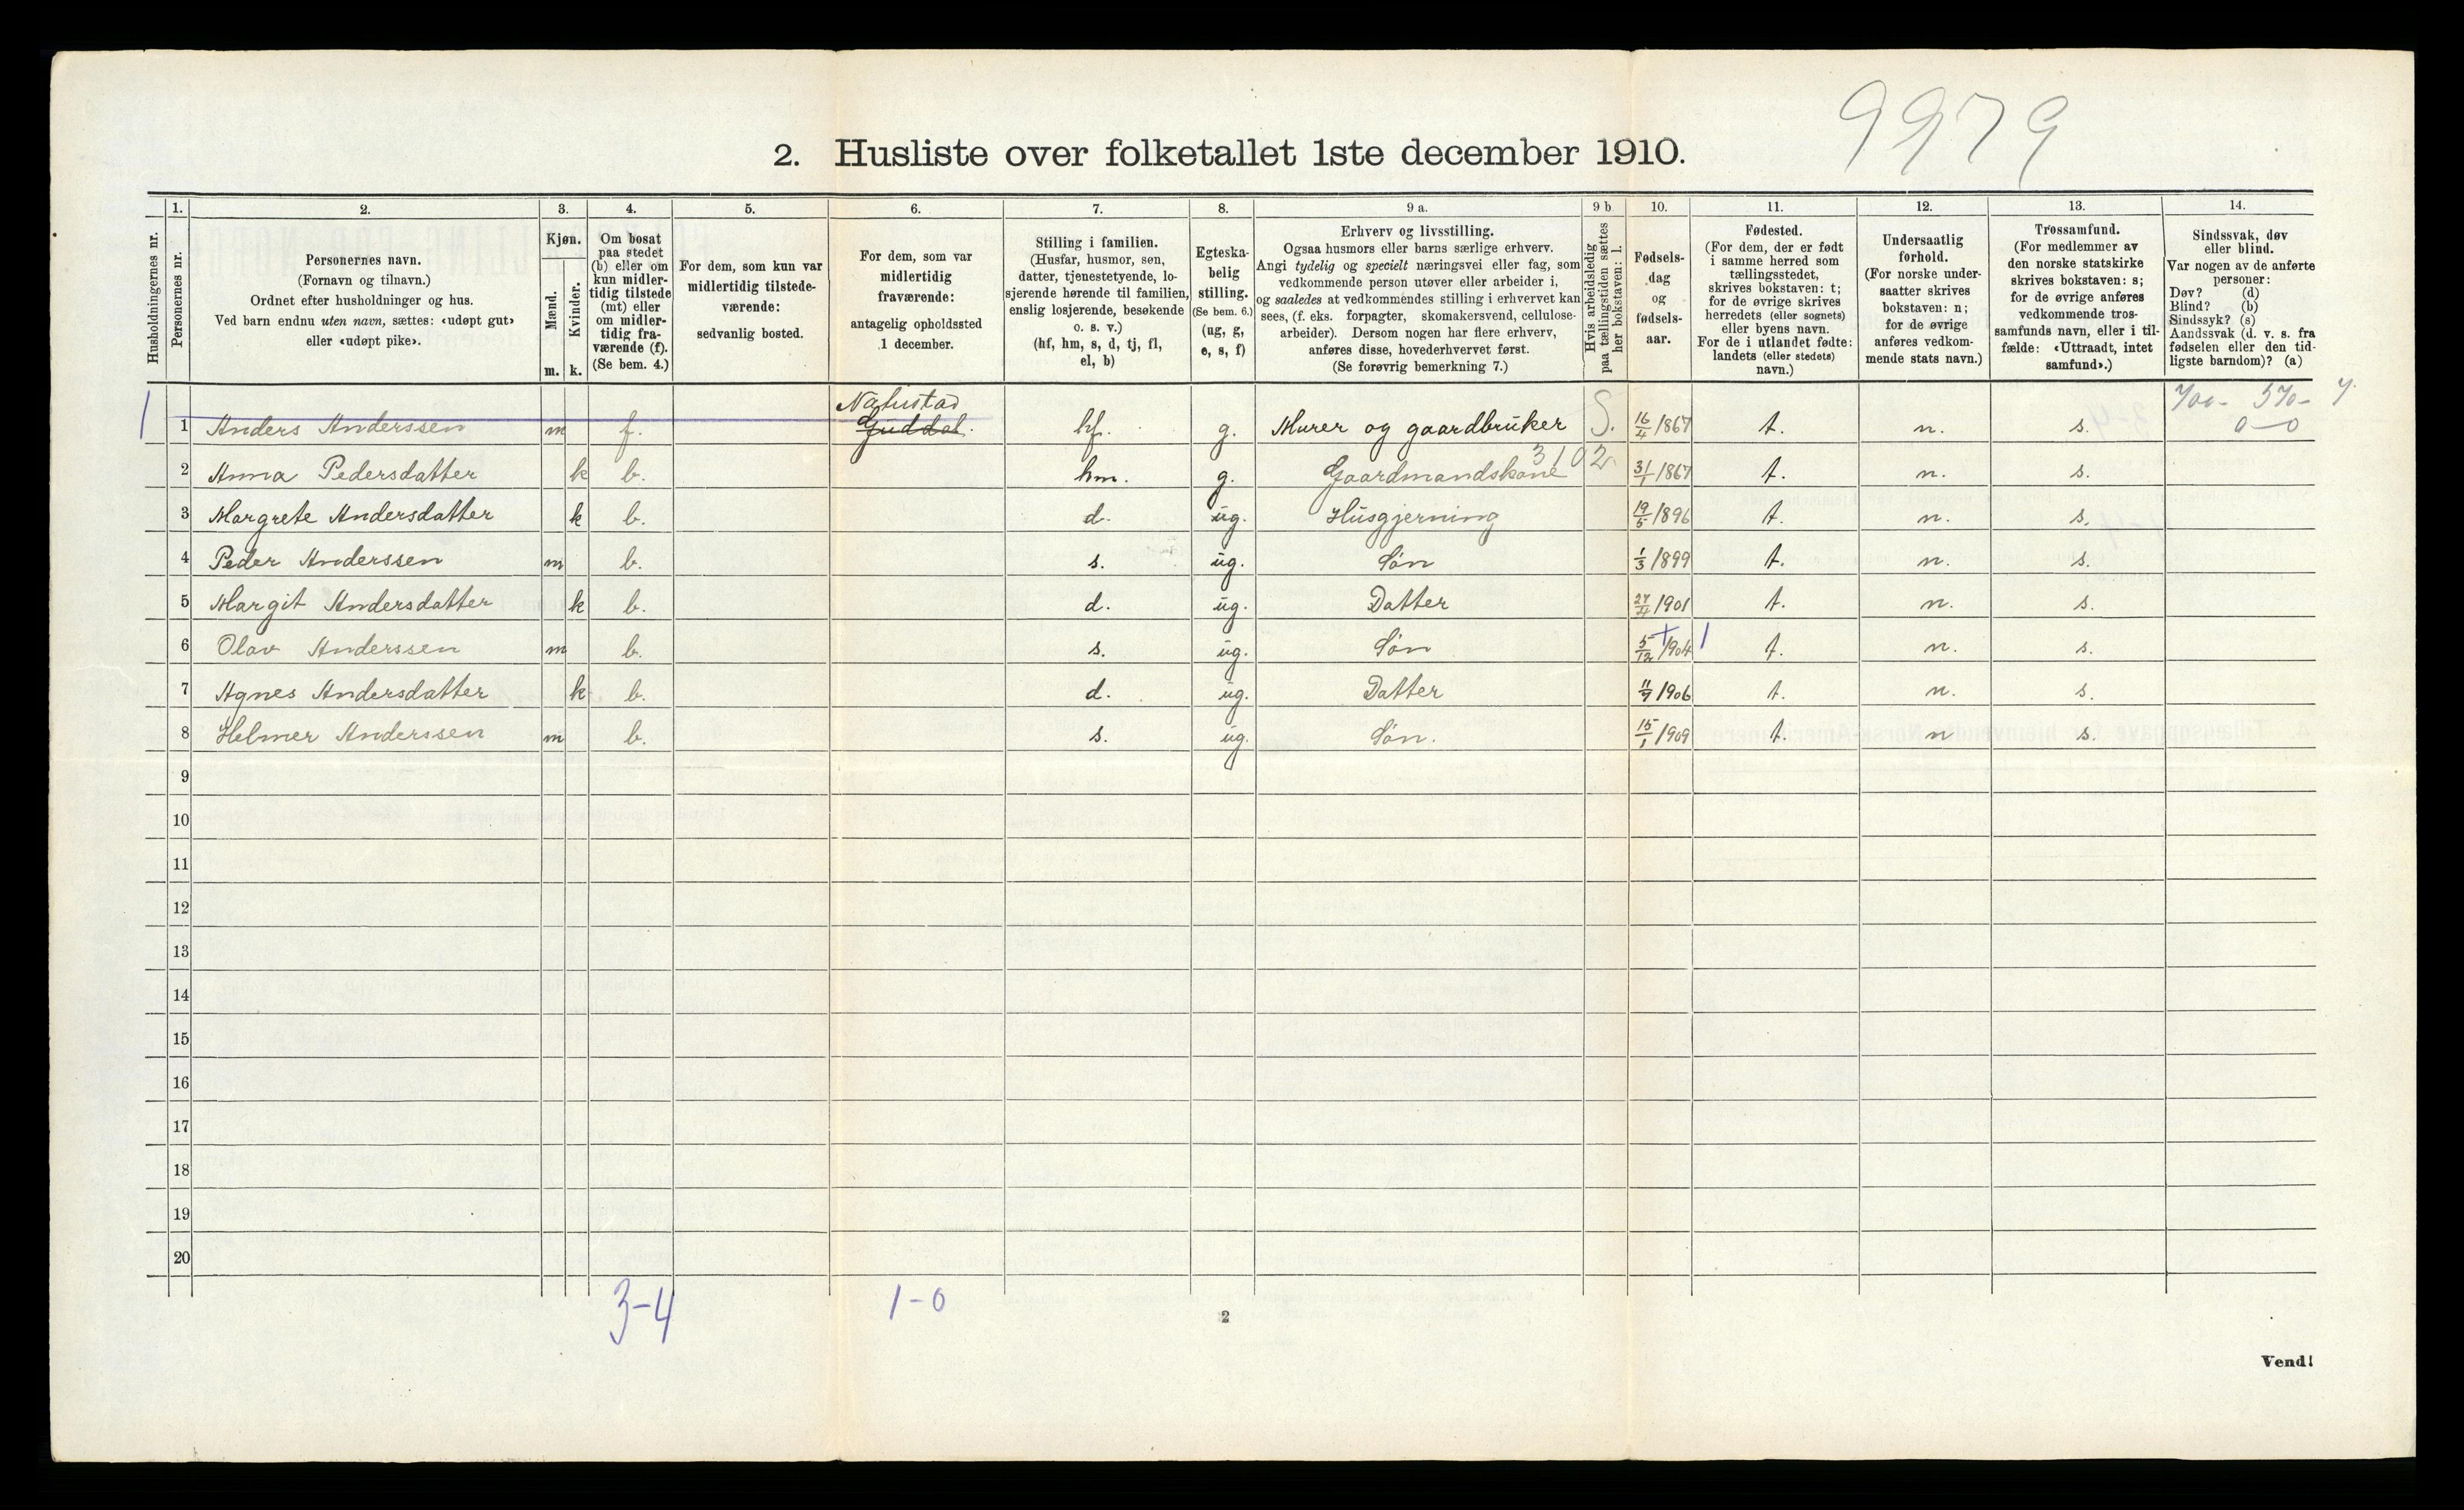 9979
2. Husliste over folketallet 1ste december 1910.
Husholdningernes nr.
1. Personernes nr.
2. Personernes navn.
(Fornavn og tilnavn.)
Ordnet efter husholdninger og hus.
Ved barn endnu uten navn, sættes: «udøpt gut»
eller «udøpt pike».
3. Kjøn.
Mænd. m.
Kvinder. k.
4. Om bosat
paa stedet
(b) eller om
kun midler-
tidig tilstede
(mt) eller
om midler-
tidig fra-
værende (f).
(Se bem. 4.)
5. For dem, som kun var
midlertidig tilstede-
værende:
sedvanlig bosted.
6. For dem, som var
midlertidig
fraværende:
antagelig opholdssted
1 december.
7. Stilling i familien.
(Husfar, husmor, søn,
datter, tjenestetyende, lo-
sjerende hørende til familien,
enslig losjerende, besøkende
o. s. v.)
(hf, hm, s, d, tj, fl,
el, b)
8. Egteska-
belig
stilling.
(Se bem. 6.)
(ug, g,
e, s, f)
9 a. Erhverv og livsstilling.
Ogsaa husmors eller barns særlige erhverv.
Angi tydelig og specielt næringsvei eller fag, som
vedkommende person utøver eller arbeider i,
og saaledes at vedkommendes stilling i erhvervet kan
sees, (f. eks. forpagter, skomakersvend, cellulose-
arbeider). Dersom nogen har flere erhverv,
anføres disse, hovederhvervet først.
(Se forøvrig bemerkning 7.)
9 b. Hvis arbeidsledig
paa tællingstiden sættes
her bokstaven: l.
10. Fødsels-
dag
og
fødsels-
aar.
11. Fødested.
(For dem, der er født
i samme herred som
tællingsstedet,
skrives bokstaven: t;
for de øvrige skrives
herredets (eller sognets)
eller byens navn.
For de i utlandet fødte:
landets (eller stedets)
navn.)
12. Undersaatlig
forhold.
(For norske under-
saatter skrives
bokstaven: n;
for de øvrige
anføres vedkom-
mende stats navn.)
13. Trossamfund.
(For medlemmer av
den norske statskirke
skrives bokstaven: s;
for de øvrige anføres
vedkommende tros-
samfunds navn, eller i til-
fælde: «Uttraadt, intet
samfund».)
14. Sindssvak, døv
eller blind.
Var nogen av de anførte
personer:
Døv? (d)
Blind? (b)
Sindssyk? (s)
Aandssvak (d. v. s. fra
fødselen eller den tid-
ligste barndom)? (a)
1 1 Anders Anderssen m f. Guddal. hf. g. Murer og gaardbruker S. 16/4 1867 t. n. s. 0-0
2 Anna Pedersdatter k b. hm. g. Gaardmandskone 3102 31/1 1867 t. n. s.
3 Margrete Andersdatter k b. d. ug. Husgjerning 19/5 1896 t. n. s.
4 Peder Anderssen m b. s. ug. Søn 1/3 1899 t. n. s.
5 Margit Andersdatter k b. d. ug. Datter 27/4 1901 t. n. s.
6 Olav Anderssen m b. s. ug. Søn 5/12 1904 t. n. s.
7 Agnes Andersdatter k b. d. ug. Datter 11/9 1906 t. n. s.
8 Helmer Anderssen m b. s. ug. Søn. 15/1 1909 t. n s.
9
10
11
12
13
14
15
16
17
18
19
20
3-4 1-0
2
Vend!